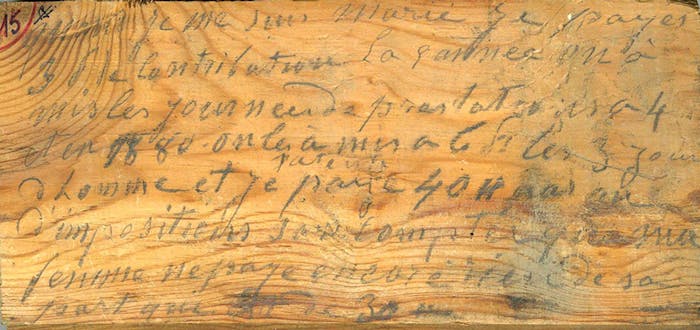 15
je me suis marié je payes
de contribution La année on à
mis les journeés de prestations a 4
et en 1880 on les à mis a 6 # les 3 jour
d'homme et je paie 40 # par an
d'impositions san compter que ma
femme ne paye encore de sa
part que de 30 #